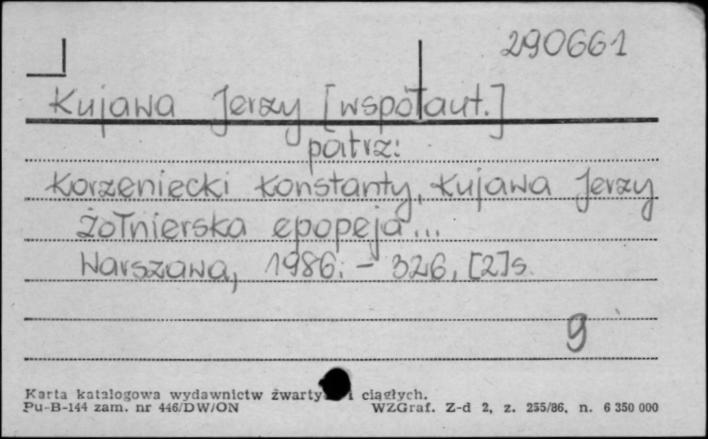 290661
Kujawa Jerzy [współaut.]
patrz:
Korzeniecki Konstanty, Kujawa Jerzy
Żołnierska epopeja...
Warszawa, 1986. – 326, [2] s.
9
Karta katalogowa wydawnictw i ciągłych.
Pu-B-144 zam. nr 446/DW/ON WZGraf. Z-d 2, z. 255/86, n. 6 350 000